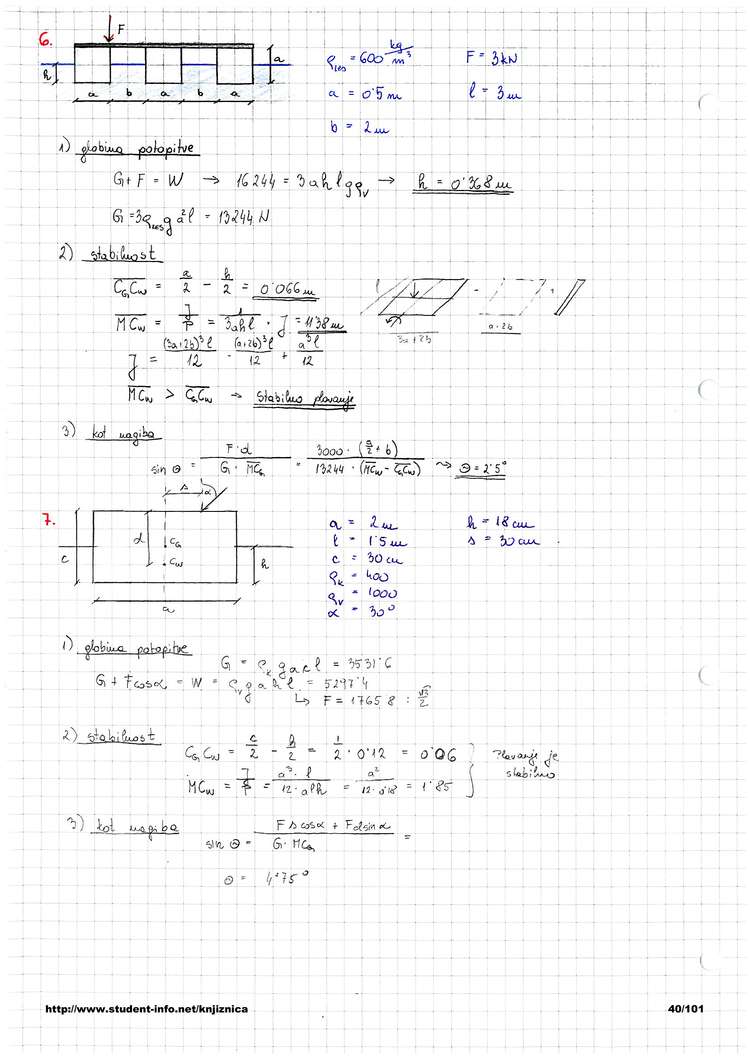 6.
F
h
a
a b a b a
ρles = 600 kg/m³ F = 3 kN
a = 0'5 m l = 3 m
b = 2 m
1) globina potopitve
G + F = W → 16244 = 3 a h l g ρv → h = 0'368 m
G = 3 ρles g a² l = 13244 N
2) stabilnost
CGCW = a/2 - h/2 = 0'066 m
MCW = J/P = 1/3ahl · J = 11'38 m
3a+2b
a+2b
J = (3a+2b)³l/12 - (a+2b)³l/12 + a³l/12
MCW > CGCW → Stabilno plavanje
3) kot nagiba
sin Θ = F·d / G·MCG = 3000·(a/2+b) / 13244·(MCW - CGCW) ⇝ Θ = 2'5°
7.
s
α
c
d
CG
CW
h
a
a = 2 m h = 18 cm
l = 1'5 m s = 30 cm
c = 30 cm
ρk = 400
ρv = 1000
α = 30°
1) globina potopitve
G = ρk g a c l = 3531'6
G + F cosα = W = ρv g a h l = 5297'4
↳ F = 1765'8 : √3/2
2) stabilnost
CGCW = c/2 - h/2 = 1/2 · 0'12 = 0'06
MCW = J/P = a³·l / 12·alh = a² / 12·0'18 = 1'85
Plavanje je
stabilno
3) kot nagiba
sin Θ = F s cosα + F d sinα / G·MCG =
Θ = 4'75°
http://www.student-info.net/knjiznica 40/101